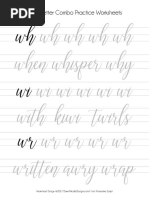 Letter Combo Practice Worksheets
wh wh wh wh wh
when whisper why
wi wi wi wi wi wi
with kiwi twirls
wr wr wr wr wr
written awry wrap